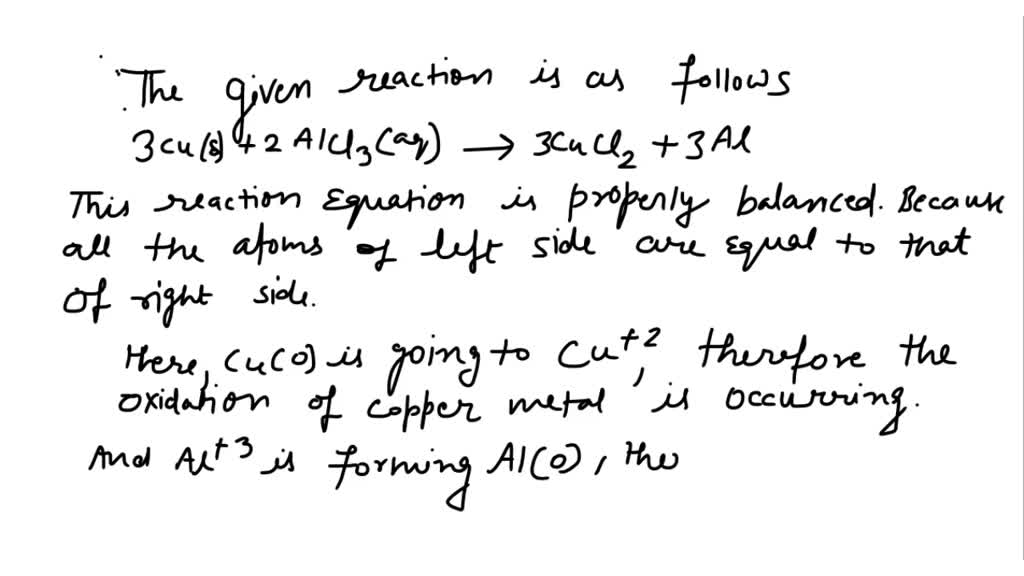 The given reaction is as follows
3Cu(s) + 2AlCl3(aq) → 3CuCl2 + 3Al
This reaction Equation is properly balanced. Because
all the atoms of left side are equal to that
Of right side.
Here, Cu(0) is going to Cu+2, therefore the
oxidation of copper metal is occurring.
And Al+3 is forming Al(0), the